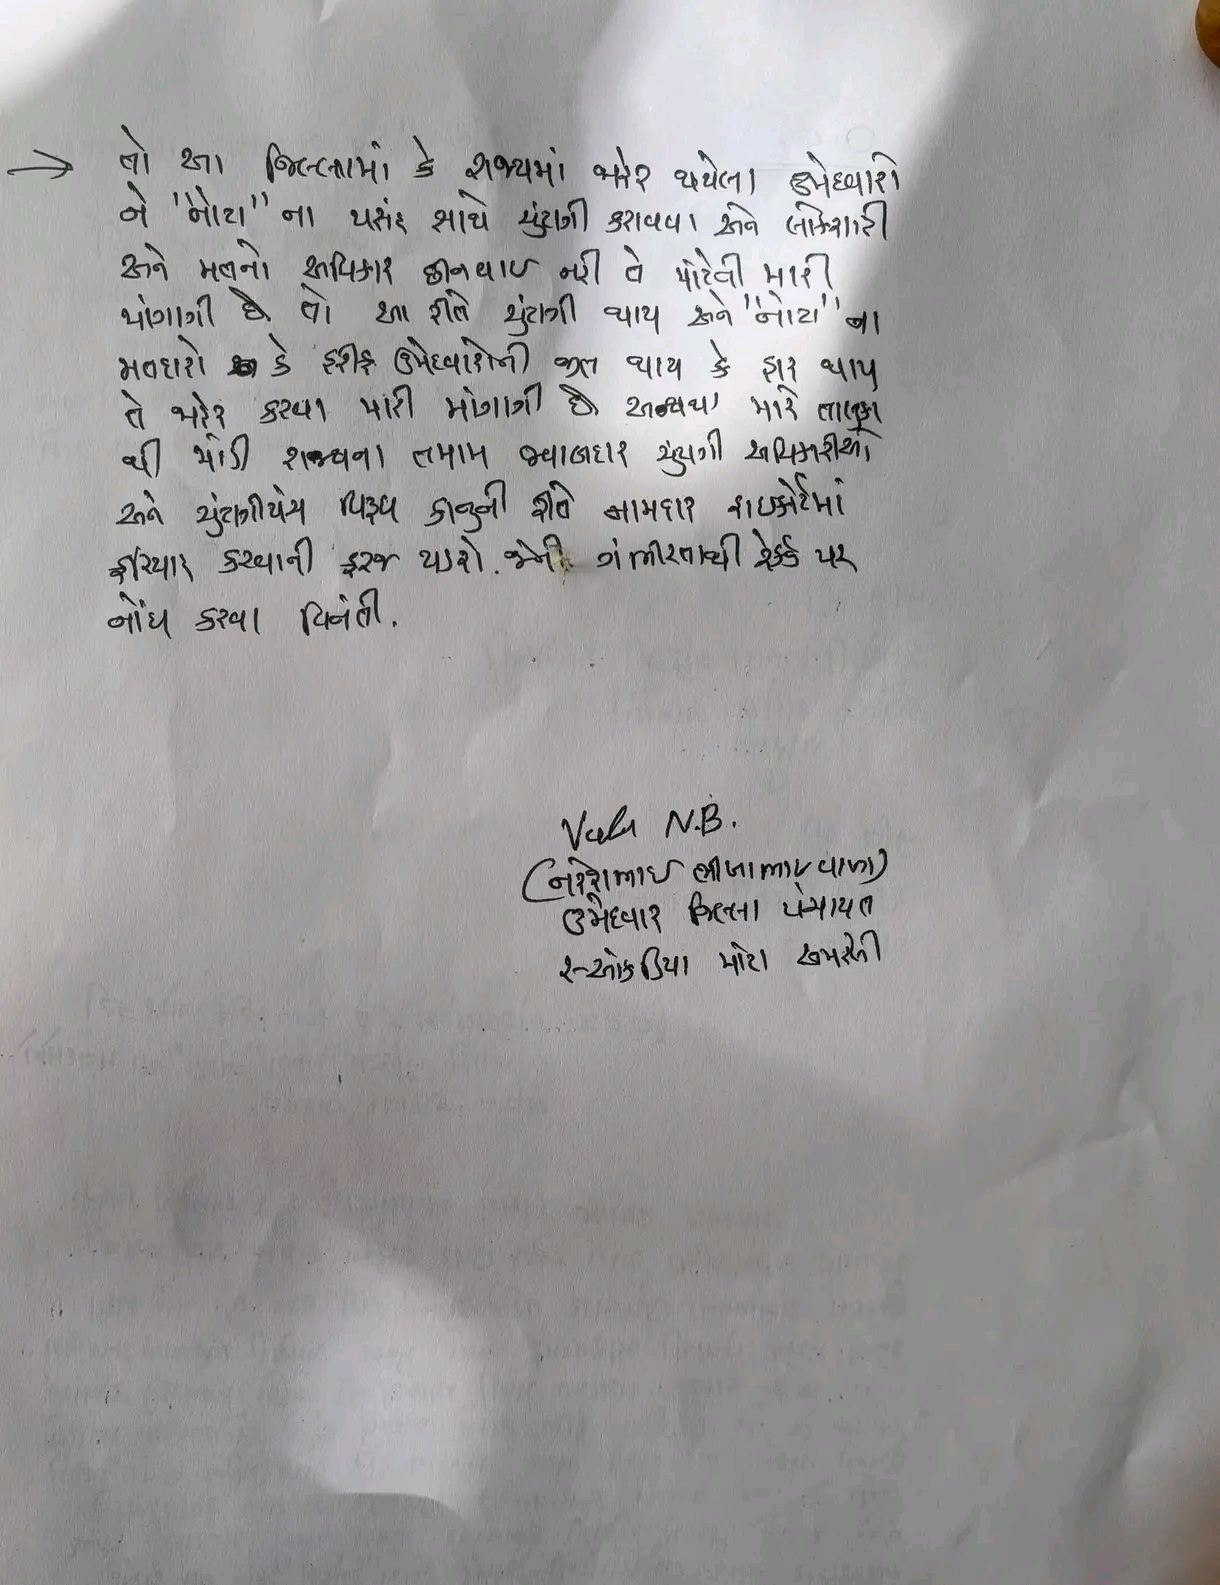 → તો આ જિલ્લામાં કે રાજ્યમાં જાહેર થયેલા ઉમેદવારો
ને "નોટા" ના પસંદ સાથે ચુંટણી કરાવવા અને લોકશાહી
અને મતનો અધિકાર છીનવાઈ નહી તે માટેની મારી
માંગણી છે તો આ રીતે ચુંટણી થાય અને "નોટા" ના
મતદારો કે હરીફ ઉમેદવારોની જીત થાય કે હાર થાય
તે જાહેર કરવા મારી માંગણી છે અન્યથા મારે તાલુકા
થી માંડી રાજ્યના તમામ જવાબદાર ચુંટણી અધિકારીઓ
અને ચુંટણીપંચ વિરૂધ કાનુની રીતે નામદાર હાઇકોર્ટમાં
ફરિયાદ કરવાની ફરજ પડશે. જેની ગંભીરતાથી રેકર્ડ પર
નોંધ કરવા વિનંતી.
Vala N.B.
(નરેશભાઇ ભીખાભાઇ વાળા)
ઉમેદવાર જિલ્લા પંચાયત
મોટા અમરેલી